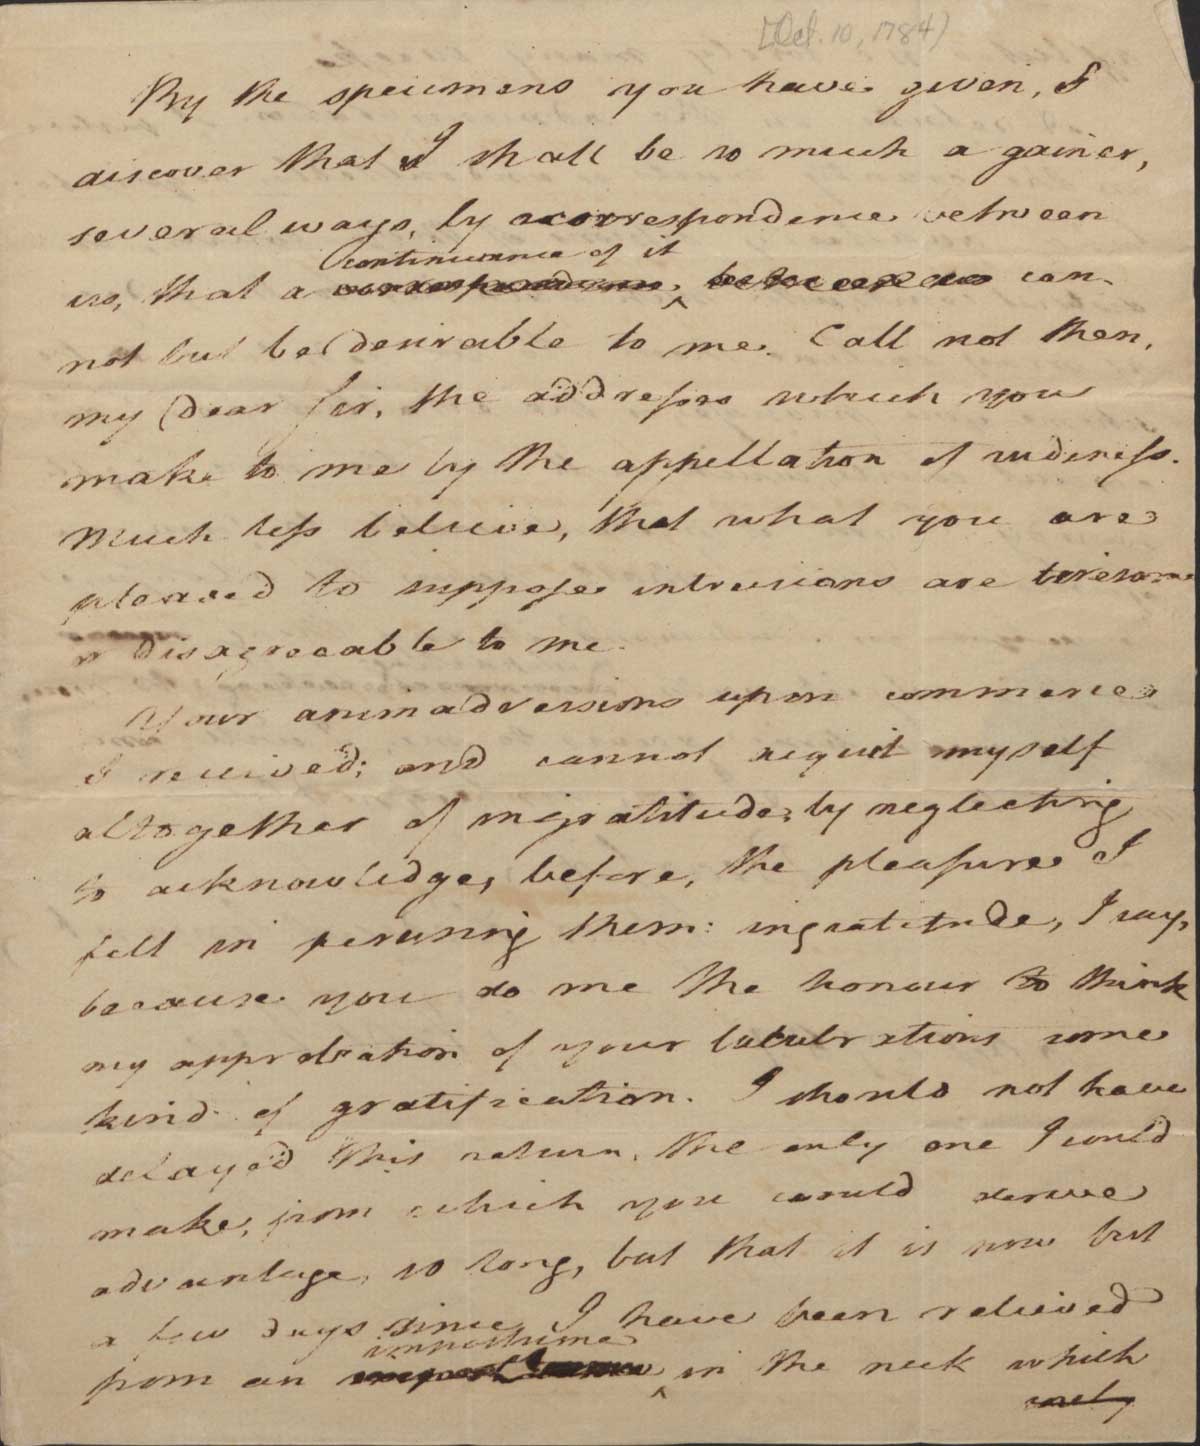 [Oct. 10, 1784]
By the specimens you have given, I
discover that I shall be so much a gainer,
several ways, by a correspondence between
continuance of it
us, that a correspondence between us can-
not but be desirable to me. Call not then,
my dear Sir, the addresses which you
make to me by the appellation of rudeness.
Much less believe, that what you are
pleased to suppose intrusions are tiresome
or disagreeable to me.
Your animadversions upon commerce
I received; and cannot acquit myself
altogether of ingratitude, by neglecting
to acknowledge, before, the pleasure I
felt in perusing them: ingratitude, I say,
because you do me the honour to think
my approbation of your lucubrations some
kind of gratification. I should not have
delayed this return, the only one I could
make, from which you could derive
advantage, so long, but that it is now but
a few days since I have been relieved
imposthume
from an in the neck which